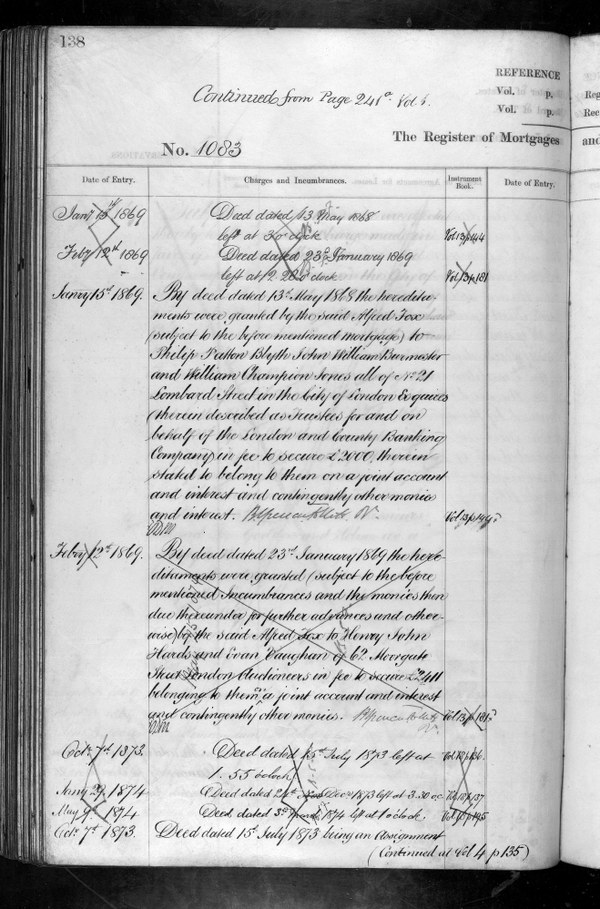 138
REFERENCE
Vol. p.
Vol. p.
Continued from Page 241a Vol 1.
The Register of Mortgages
and
No. 1083
Date of Entry.
Charges and Incumbrances.
Instrument Book.
Date of Entry.
Jany 15th 1869
Deed dated 13 May 1868
left at 3 o'clock
Vol 13 p 144
Feby 12th 1869
Deed dated 23rd January 1869
left at 12.20 o'clock
Vol 13 p 181
Janry 15th 1869.
By deed dated 13th May 1868 the heredita-
ments were granted by the said Alfred Fox
(subject to the before mentioned mortgage) to
Philip Patton Blyth John William Burmester
and William Champion Jones all of No 21
Lombard Street in the City of London Esquires
(therein described as Trustees for and on
behalf of the London and County Banking
Company) in fee to secure £2000, therein
stated to belong to them on a joint account
and interest and contingently other monies
and interest.
Vol 13 p 149
Febry 12th 1869.
By deed dated 23rd January 1869 the here-
ditaments were granted (subject to the before
mentioned Incumbrances and the monies then
due thereunder for further advances and other-
wise) by the said Alfred Fox to Henry John
Hards and Evan Vaughan of 62 Moorgate
Street London Auctioneers in fee to secure £2411
belonging to them on a joint account and interest
and contingently other monies.
Vol 13 p 185
Octr. 7th 1873.
Deed dated 15th July 1873 left at
1.55 o'clock
Jany 29. 1874
Deed dated Decr 1873 left at 3.30 oc
May 9th 1874
Deed dated 3rd 1874 left at 1 o'clock.
Octr. 7th 1873.
Deed dated 15th July 1873 being an Assignment
(Continued at Vol 4 p 135)